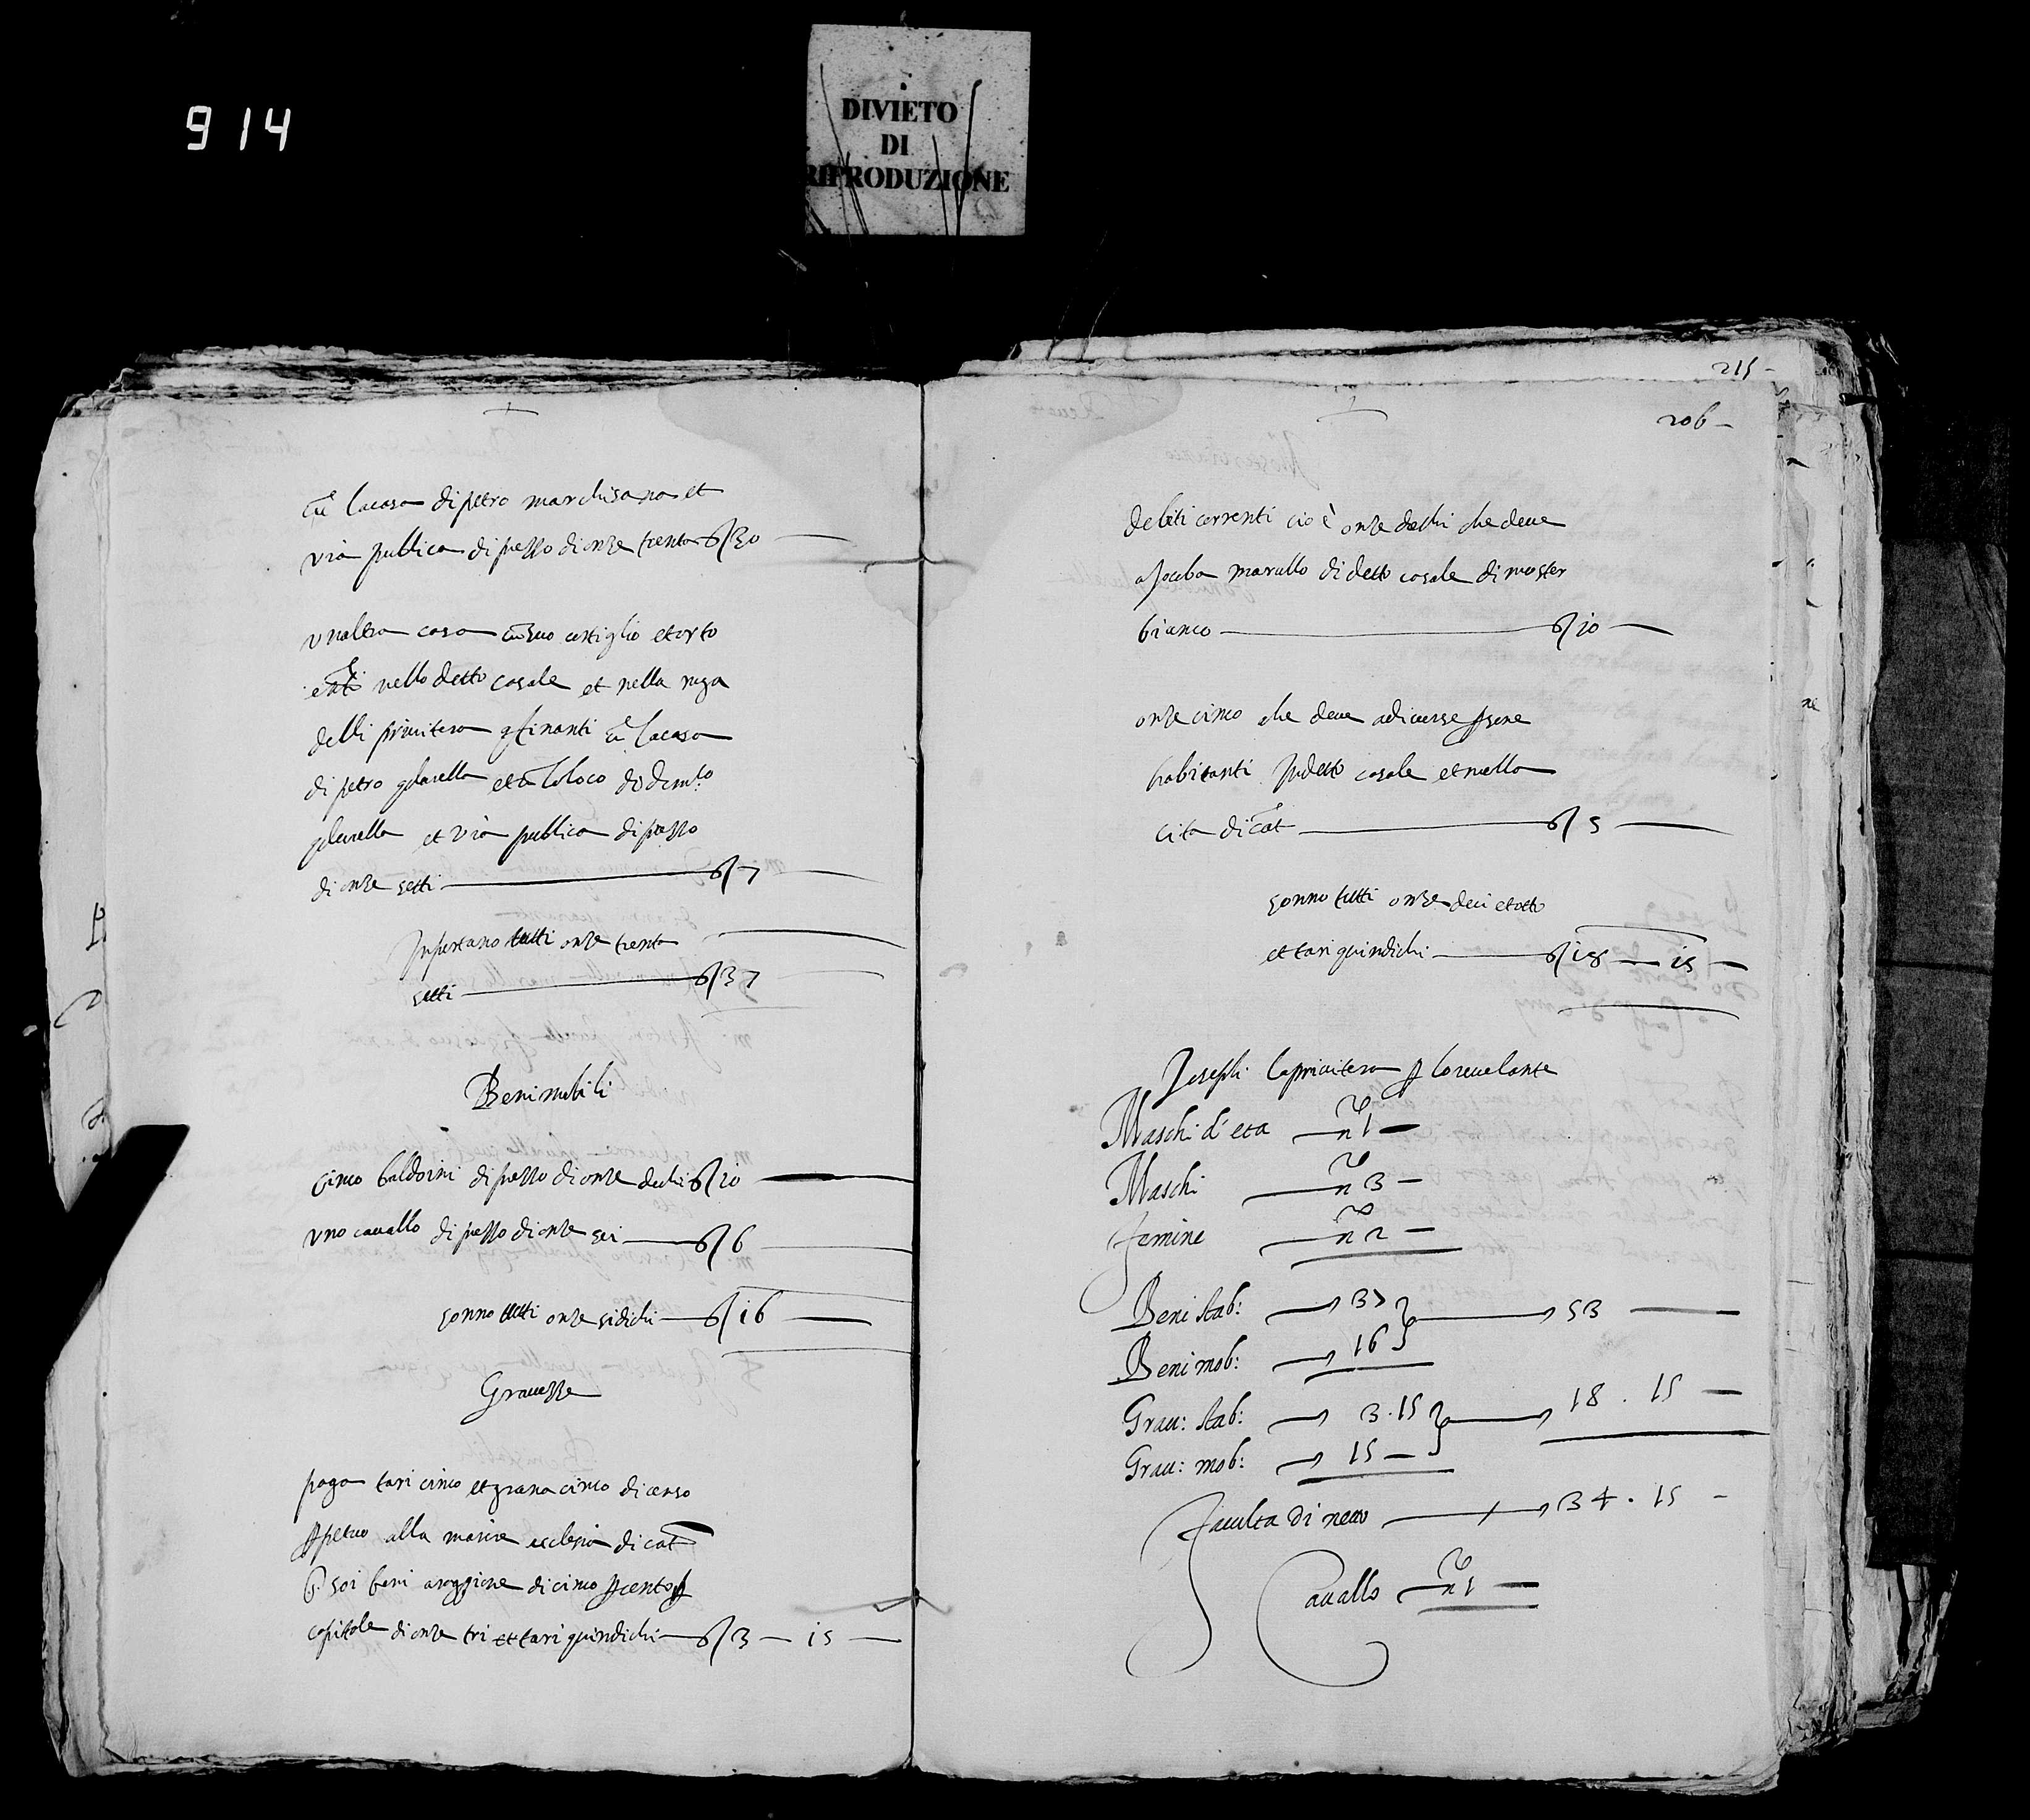 914
DIVIETO
DI
RIPRODUZIONE
cũ la casa di petro marchisana et
via publica di prezzo di onze trenta 30
unaltra casa cũ suo cortiglio et orto
nello detto casale et nella ruga
delli privitera cũ la casa
di petro et cũ lo loco di
et via publica di prezzo
di onze setti 7
Inportano tutti onze trenta
setti 37
Beni mobili
Cinco baldoini di prezzo di onze dechi 10
uno cavallo di prezzo di onze sei 6
sonno tutti onze sidichi 16
Gravezze
paga tari cinco et grana cinco di censo
alla maire ecclesia di cat
soi beni a raggione di cinco
capitale di onze tri et tari quindichi 3 15
215
206
debiti correnti cio è onze dechi che deve
a Jacubo marullo di detto casale di moster
bianco 10
onze cinco che deve a diverse
habitanti In detto casale et nella
cita di cat 5
sonno tutti onze deci et otto
et tari quindichi 18 15
Joseph la privitera lo revelante
Maschi d'eta n 1
Maschi n 3
femine n 2
Beni stab: 37 53
Beni mob: 16
Grav: stab: 3.15 18.15
Grav: mob: 15
faculta di netto 34.15
Cavallo n 1